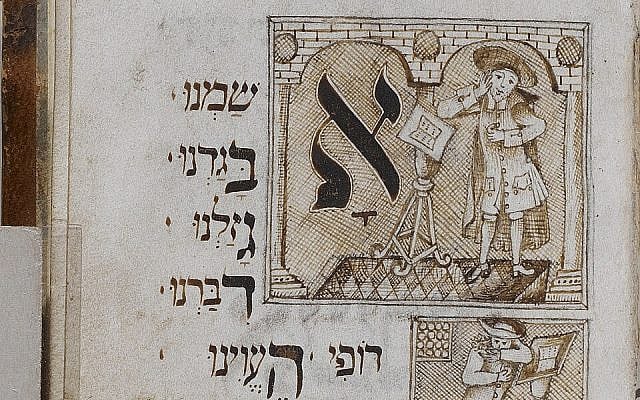 אָשַׁמְנוּ·
בָּגַדְנוּ·
גָּזַלְנוּ·
דִּבַּרְנוּ·
דוֹפִי · הֶעֱוִינוּ